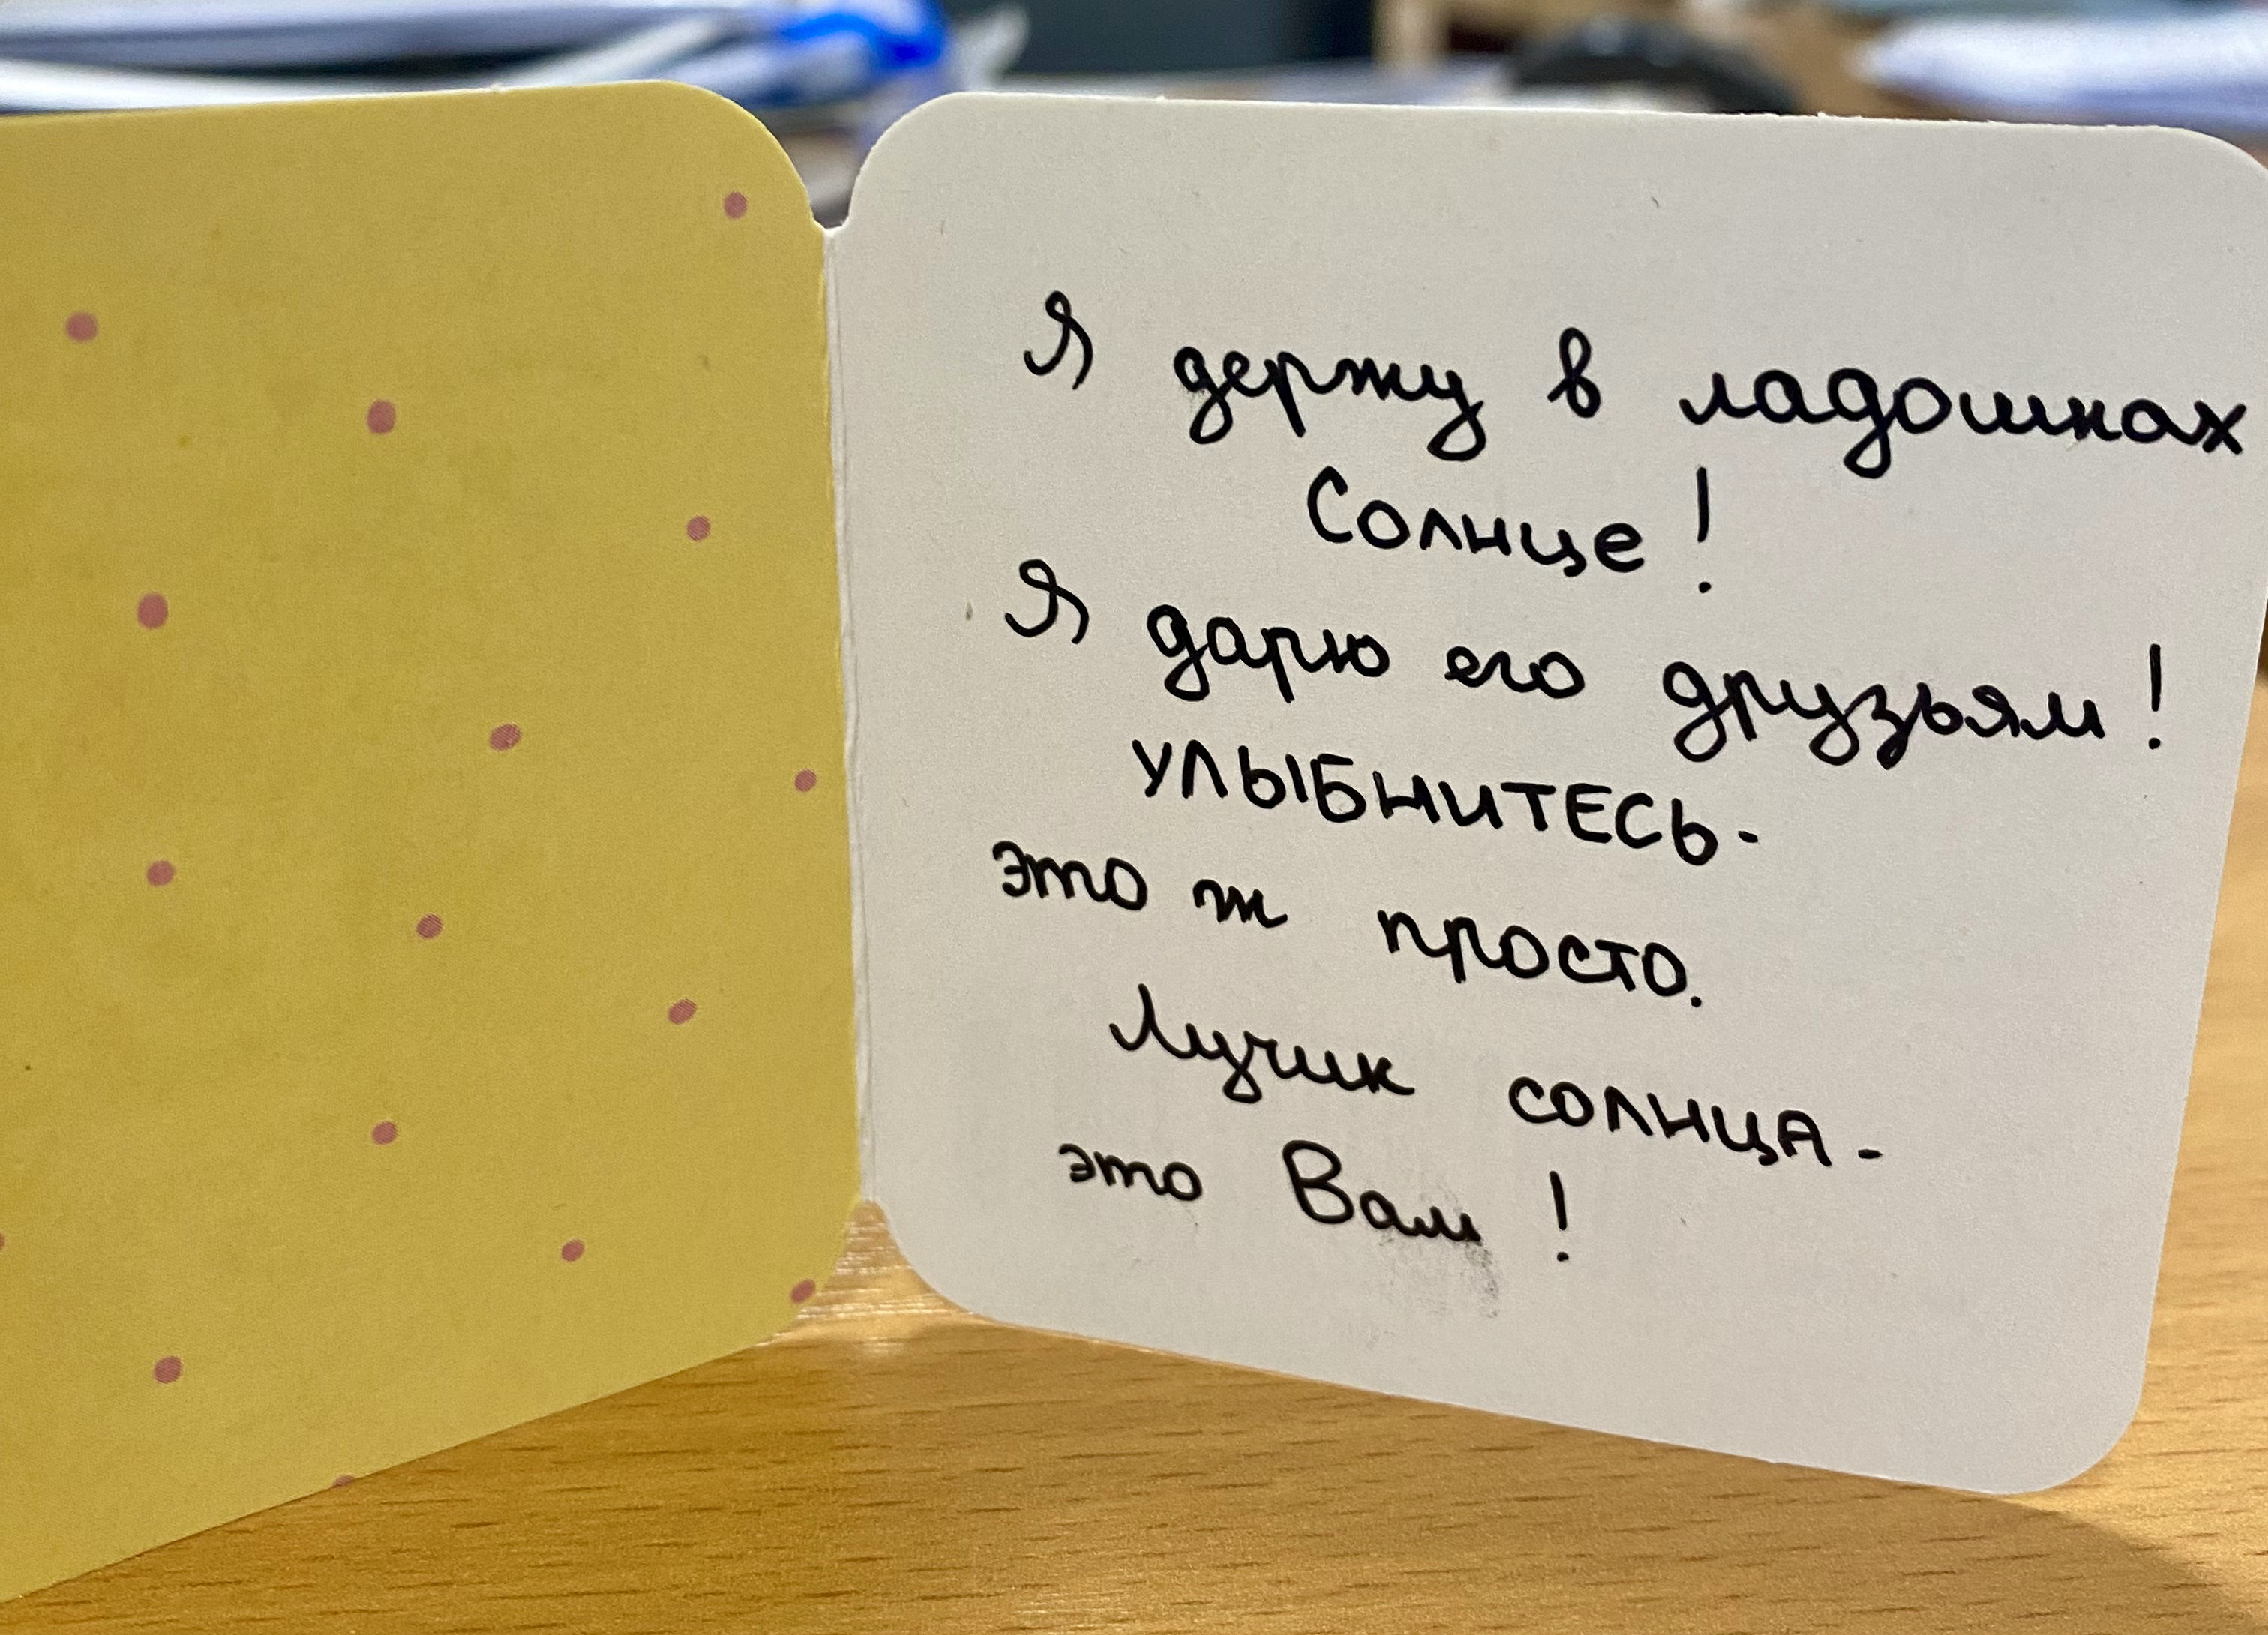 Я держу в ладошках
Солнце!
Я дарю его друзьям!
УЛЫБНИТЕСЬ-
это ж просто.
Лучик солнца-
это Вам!